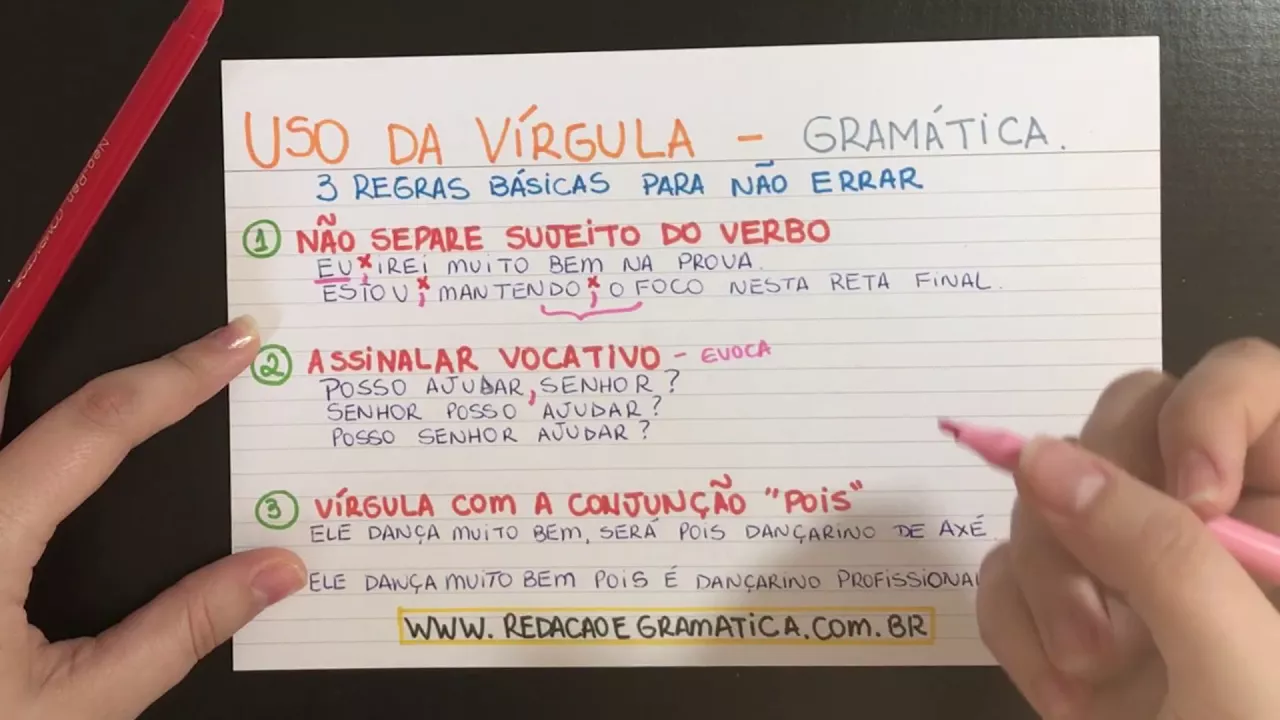 USO DA VÍRGULA - GRAMÁTICA.
3 REGRAS BÁSICAS PARA NÃO ERRAR
1 NÃO SEPARE SUJEITO DO VERBO
EU, IREI MUITO BEM NA PROVA.
ESTOU, MANTENDO, O FOCO NESTA RETA FINAL.
2 ASSINALAR VOCATIVO - EVOCA
POSSO AJUDAR, SENHOR?
SENHOR POSSO AJUDAR?
POSSO SENHOR AJUDAR?
3 VÍRGULA COM A CONJUNÇÃO "POIS"
ELE DANÇA MUITO BEM, SERÁ POIS DANÇARINO DE AXÉ.
ELE DANÇA MUITO BEM POIS É DANÇARINO PROFISSIONAL
WWW.REDACAOEGRAMATICA.COM.BR